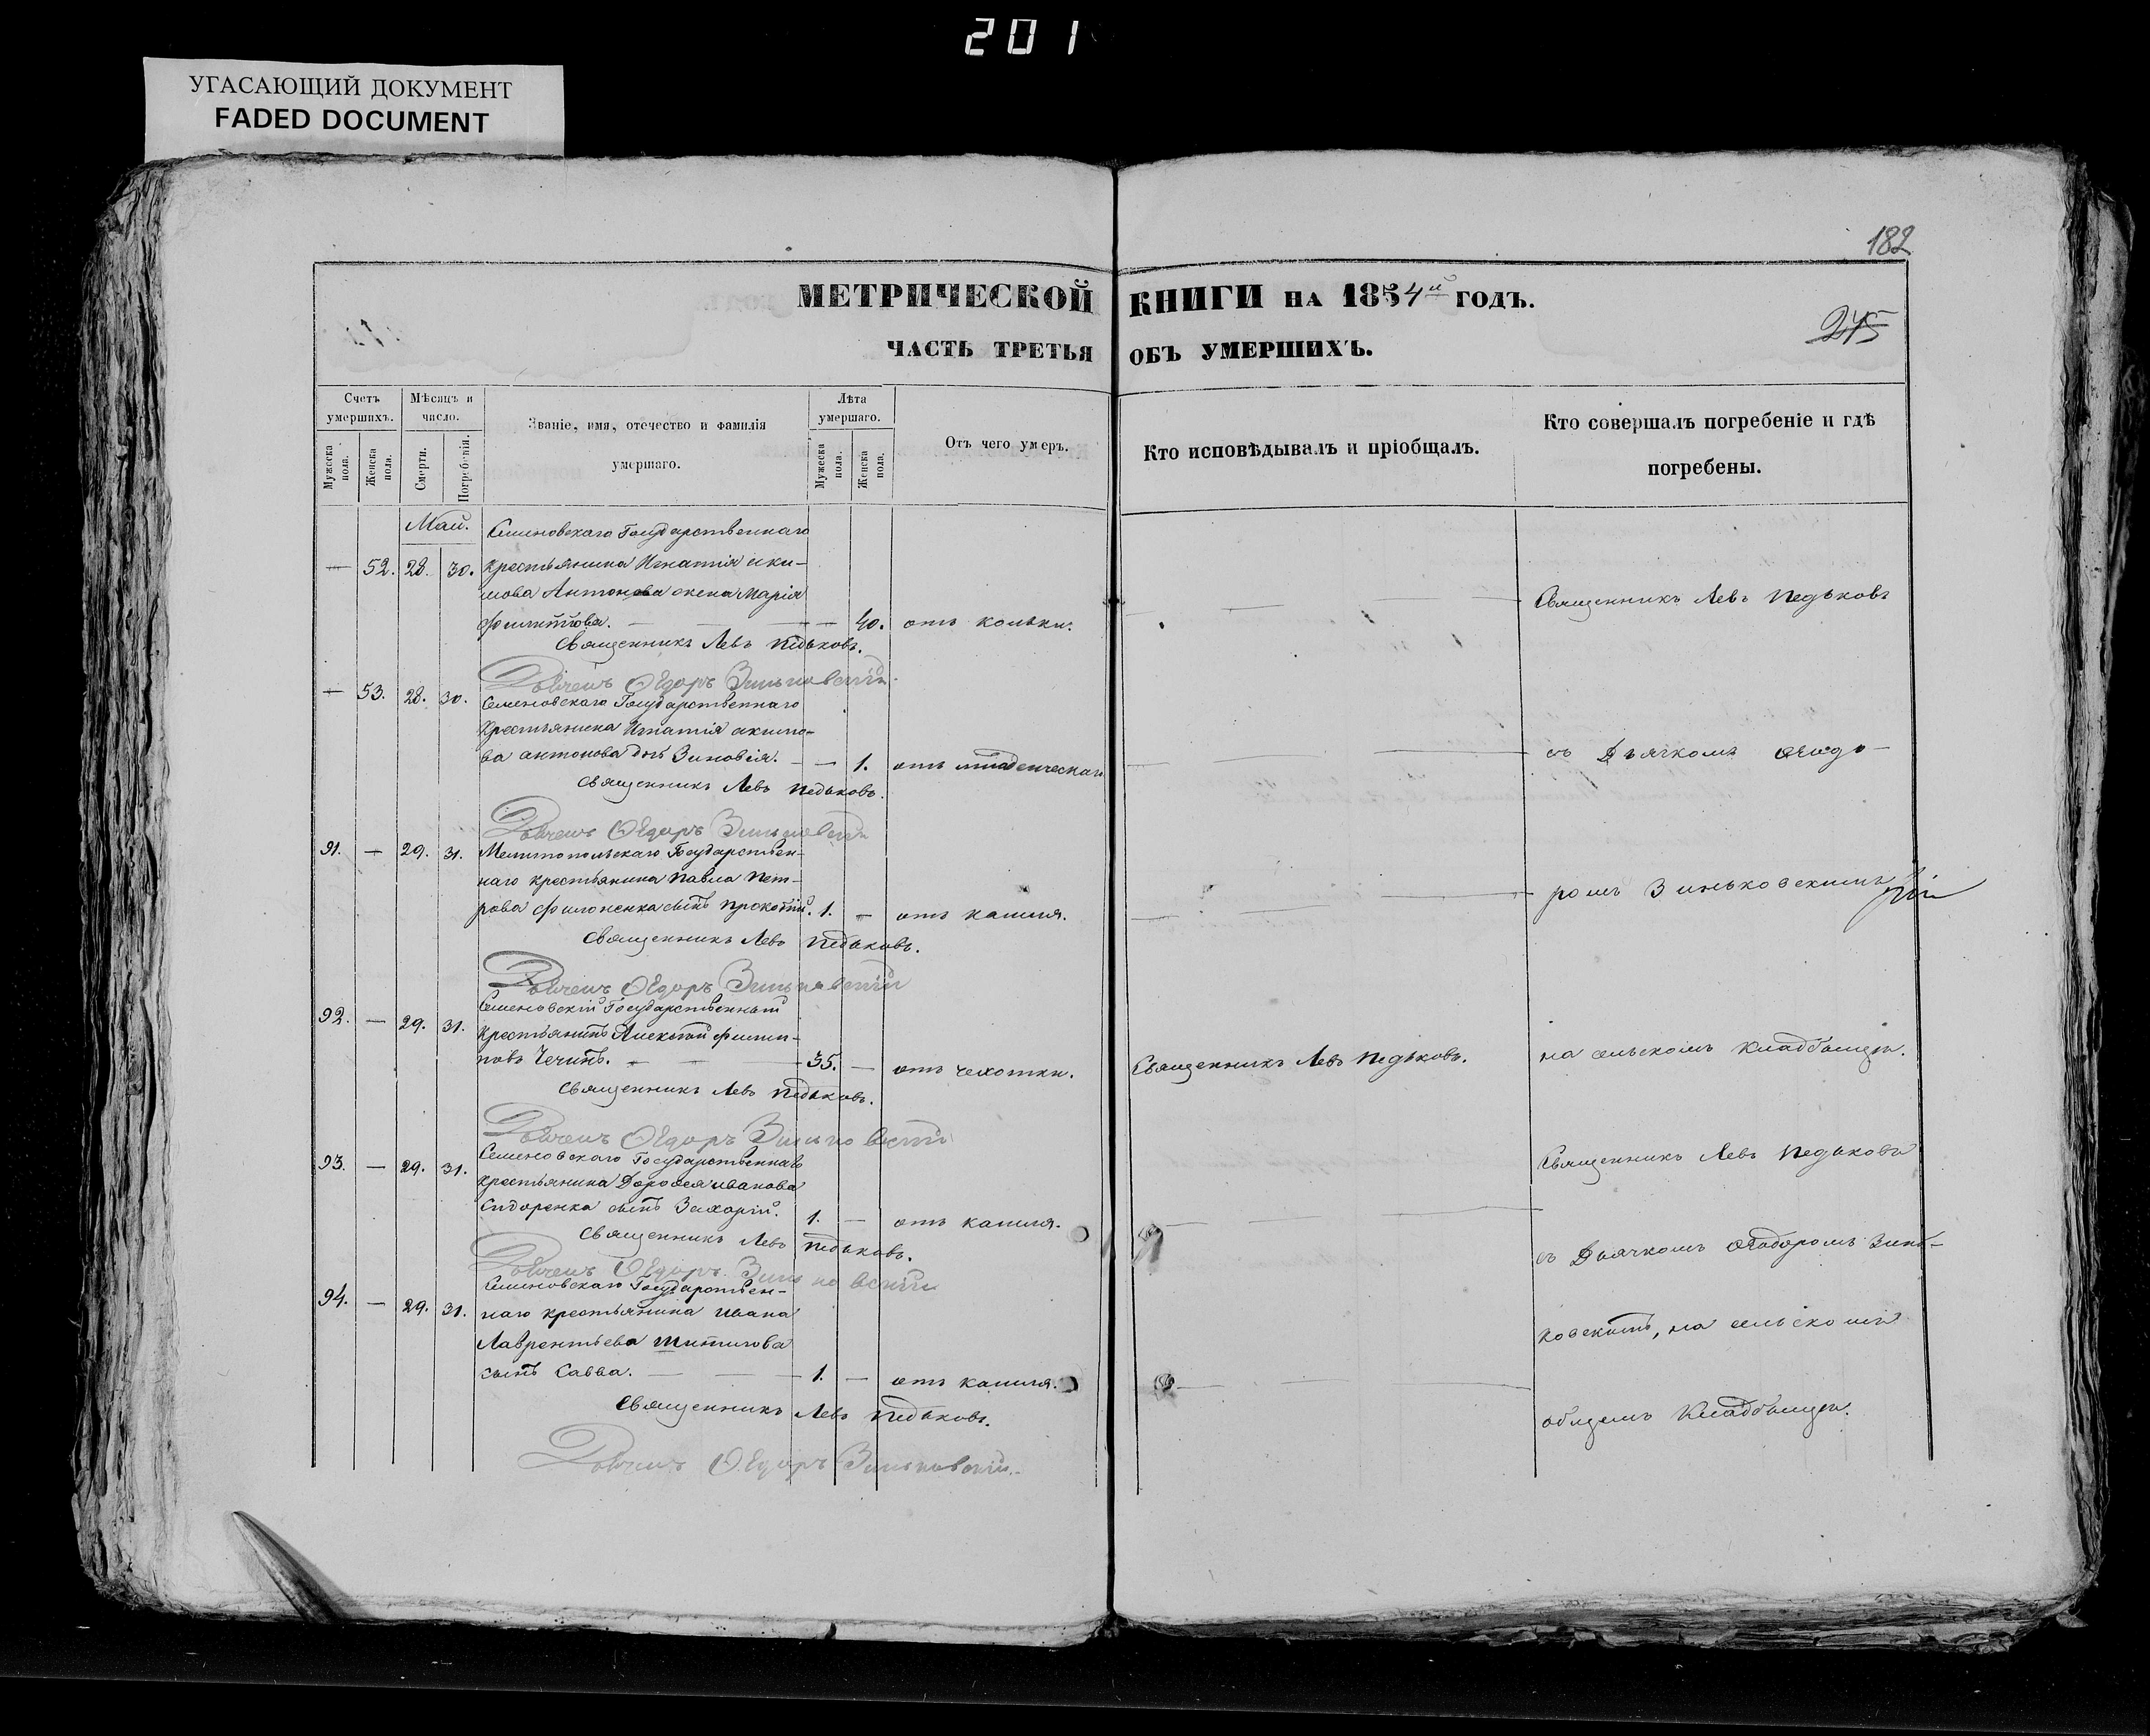 201
УГАСАЮЩИЙ ДОКУМЕНТ
FADED DOCUMENT
182
МЕТРИЧЕСКОЙ КНИГИ НА 1854й ГОДЪ.
245
ЧАСТЬ ТРЕТЬЯ ОБЪ УМЕРШИХЪ.
Счетъ умершихъ.
Мужеска пола.
Женска пола.
Мѣсяцъ и число.
Смерти.
Погребенія.
Званіе, имя, отечество и фамилія
умершаго.
Лѣта умершаго.
Мужеска пола.
Женска пола.
Отъ чего умеръ.
Кто исповѣдывалъ и пріобщалъ.
Кто совершалъ погребеніе и гдѣ
погребены.
Май.
Семеновскаго Государственнаго
— 52. 28. 30. крестьянина Игнатія аки-
мова Антонова жена Марія
Филиппова. — 40. отъ кольки.
Священникъ Левъ Педьковъ.
Дьячекъ Ѳедоръ Зиньковскій.
— 53. 28. 30. Семеновскаго Государственнаго
Крестьянина Игнатія акимо-
ва антонова дчь Зиновія. — 1. отъ младенческаго
Священникъ Левъ Педьковъ.
Дьячекъ Ѳедоръ Зиньковскій
91. — 29. 31. Мелитопольскаго Государствен-
наго крестьянина Павла Пет-
рова Филоненка сынъ Прокопій. 1. — отъ кашля.
Священникъ Левъ Педьковъ.
Дьячекъ Ѳедоръ Зиньковскій
92. — 29. 31. Семеновскій Государственный
крестьянинъ Алексѣй Филип-
повъ — 35. — отъ чехотки.
Священникъ Левъ Педьковъ.
Дьячекъ Ѳедоръ Зиньковскій
93. — 29. 31. Семеновскаго Государственнаго
крестьянина Дорофея иванова
Сидоренка сынъ Захарій. 1. — отъ кашля.
Священникъ Левъ Педьковъ.
Дьячекъ Ѳедоръ Зиньковскій
94. — 29. 31. Семеновскаго Государствен-
наго крестьянина Ивана
Лаврентьева
сынъ Савва. — 1. — отъ кашля.
Священникъ Левъ Педьковъ.
Дьячекъ Ѳедоръ Зиньковскій.
Священникъ Левъ Педьковъ.
Священникъ Левъ Педьковъ
съ Дьячкомъ Ѳеодо-
ромъ Зиньковскимъ
на сельскомъ кладбищѣ.
Священникъ Левъ Педьковъ
съ Дьячкомъ Ѳеодоромъ Зинь-
ковскимъ, на сельскомъ
общемъ Кладбищѣ.